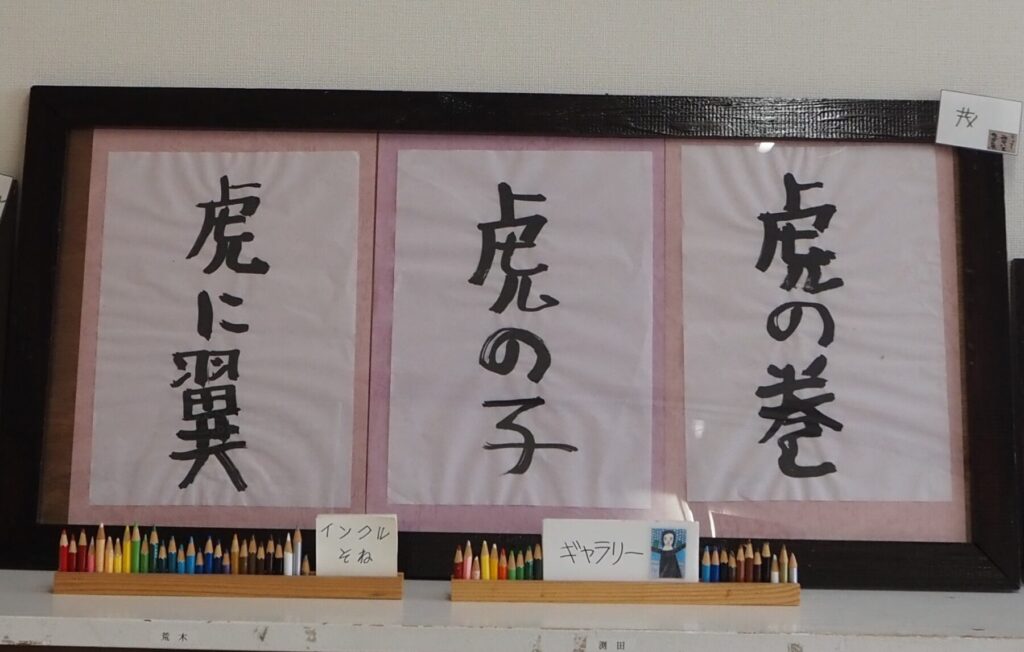 虎の巻
虎の子
虎に翼
インクル
そね
ギャラリー
荒木
渕田